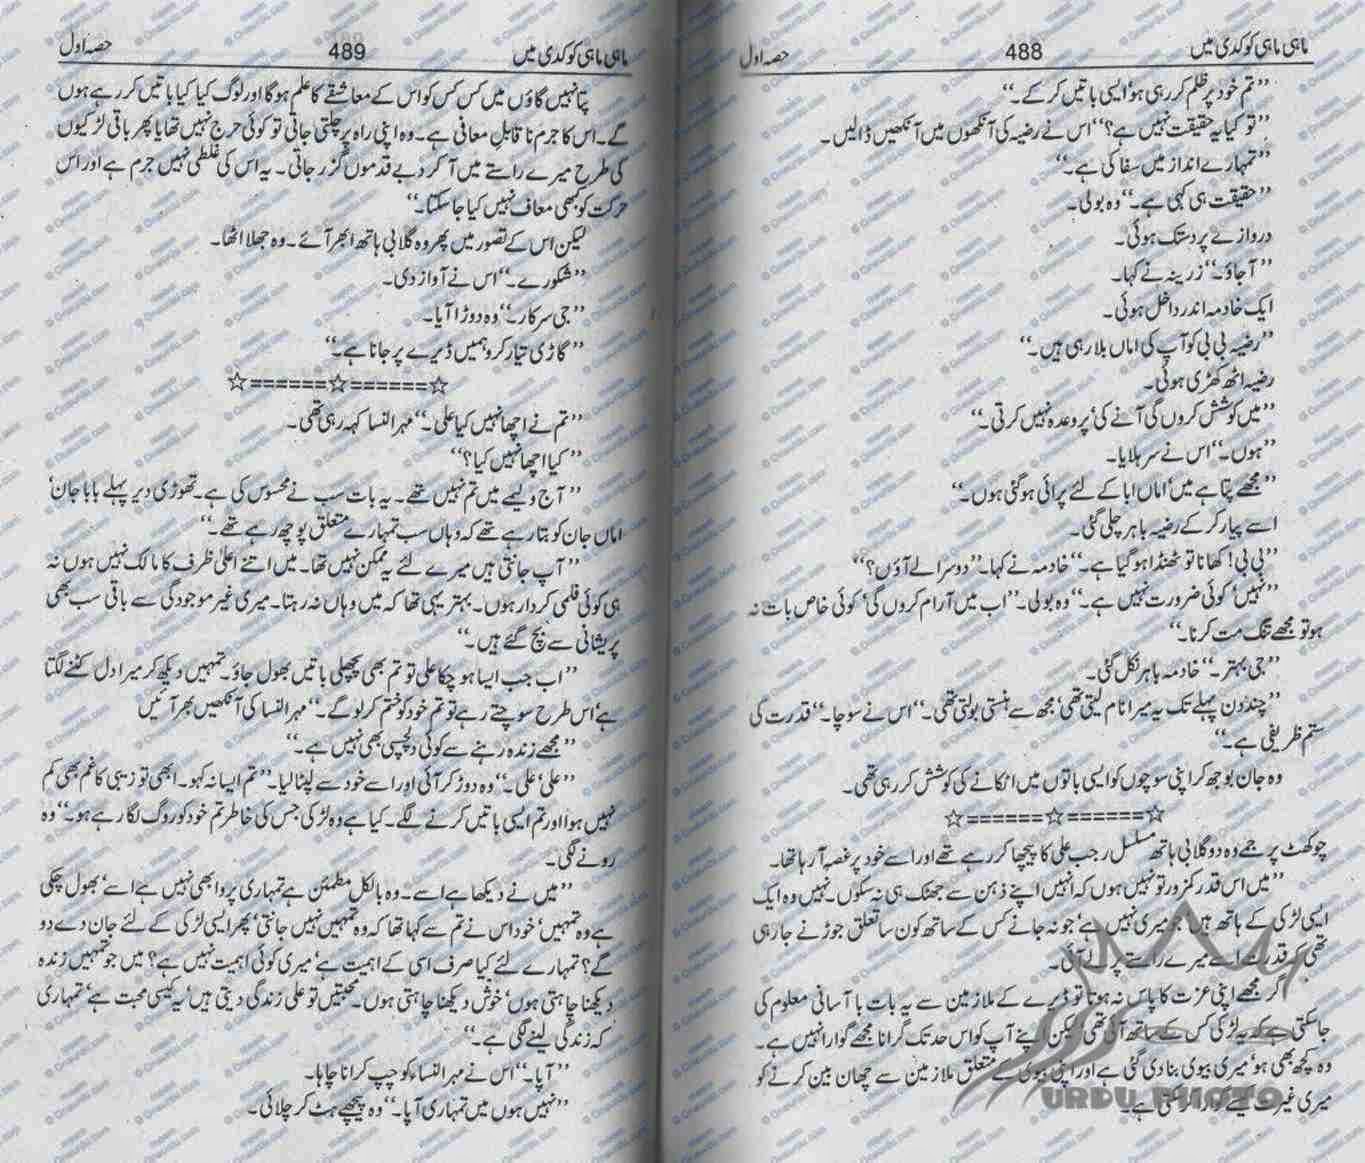 ماہی ماہی کوکدی میں 488 حصہ اول
’’تم خود پر ظلم کر رہی ہو‘ ایسی باتیں کر کے۔‘‘
’’تو کیا یہ حقیقت نہیں ہے؟‘‘ اس نے رضیہ کی آنکھوں میں آنکھیں ڈالیں۔
’’تمہارے انداز میں سفاکی ہے۔‘‘
’’حقیقت ہی کہی ہے۔‘‘ وہ بولی۔
دروازے پر دستک ہوئی۔
’’آ جاؤ۔‘‘ زرینہ نے کہا۔
ایک خادمہ اندر داخل ہوئی۔
’’رضیہ بی بی کو آپ کی اماں بلا رہی ہیں۔‘‘
رضیہ اٹھ کھڑی ہوئی۔
’’میں کوشش کروں گی آنے کی‘ پر وعدہ نہیں کرتی۔‘‘
’’ہوں۔‘‘ اس نے سر ہلایا۔
’’مجھے پتا ہے میں‘ اماں ابا کے لئے پرائی ہو گئی ہوں۔‘‘
اسے پیار کر کے رضیہ باہر چلی گئی۔
’’بی بی! کھانا تو ٹھنڈا ہو گیا ہے۔‘‘ خادمہ نے کہا۔ ’’دوسرا لے آؤں؟‘‘
’’نہیں‘ کوئی ضرورت نہیں ہے۔‘‘ وہ بولی۔ ’’اب میں آرام کروں گی‘ کوئی خاص بات نہ
ہو تو مجھے تنگ مت کرنا۔‘‘
’’جی بہتر۔‘‘ خادمہ باہر نکل گئی۔
’’چند دن پہلے تک یہ میرا نام لیتی تھی‘ مجھ سے ہنستی بولتی تھی۔‘‘ اس نے سوچا۔ ’’قدرت کی
ستم ظریفی ہے۔‘‘
وہ جان بوجھ کر اپنی سوچوں کو ایسی باتوں میں اٹکانے کی کوشش کر رہی تھی۔
☆======☆======☆
چوکھٹ پر جمے وہ دو گلابی ہاتھ مسلسل رجب علی کا پیچھا کر رہے تھے اور اسے خود پر غصہ آ رہا تھا۔
’’میں اس قدر کمزور تو نہیں ہوں کہ انہیں اپنے ذہن سے جھٹک ہی نہ سکوں۔ نہیں وہ ایک
ایسی لڑکی کے ہاتھ ہیں‘ جو میری نہیں ہے‘ جو نہ جانے کس کے ساتھ کون سا تعلق جوڑنے جا رہی
تھی کہ قدرت اسے میرے راستے پر لے آئی۔
گر مجھے اپنی عزت کا پاس نہ ہوتا تو ڈیرے کے ملازمین سے یہ بات با آسانی معلوم کی
جا سکتی ہے کہ یہ لڑکی کس کے ساتھ آئی تھی لیکن اپنے آپ کو اس حد تک گرانا مجھے گوارا نہیں ہے۔
وہ کچھ بھی ہو‘ میری بیوی بنا دی گئی ہے اور اپنی بیوی کے متعلق ملازمین سے چھان بین کرنے کو
میری غیرت کیسے گوارا کر سکتی ہے۔
URDU PHOTO
ماہی ماہی کوکدی میں 489 حصہ اول
پتا نہیں گاؤں میں کس کس کو اس کے معاشقے کا علم ہو گا اور لوگ کیا کیا باتیں کر رہے ہوں
گے۔ اس کا جرم نا قابل معافی ہے۔ وہ اپنی راہ پر چلتی جاتی تو کوئی حرج نہیں تھا یا پھر باقی لڑکیوں
کی طرح میرے راستے میں آ کر دبے قدموں گزر جاتی۔ یہ اس کی غلطی نہیں جرم ہے اور اس
حرکت کو کبھی معاف نہیں کیا جا سکتا۔‘‘
لیکن اس کے تصور میں پھر وہ گلابی ہاتھ ابھر آئے۔ وہ جھلا اٹھا۔
’’شکورے۔‘‘ اس نے آواز دی۔
’’جی سرکار۔‘‘ وہ دوڑا آیا۔
’’گاڑی تیار کرو ہمیں ڈیرے پر جانا ہے۔‘‘
☆======☆======☆
’’تم نے اچھا نہیں کیا علی۔‘‘ مہر النسا کہہ رہی تھی۔
’’کیا اچھا نہیں کیا؟‘‘
’’آج ولیمے میں تم نہیں تھے۔ یہ بات سب نے محسوس کی ہے۔ تھوڑی دیر پہلے بابا جان‘
اماں جان کو بتا رہے تھے کہ وہاں سب تمہارے متعلق پوچھ رہے تھے۔‘‘
’’آپ جانتی ہیں میرے لئے یہ ممکن نہیں تھا۔ میں اتنے اعلیٰ ظرف کا مالک نہیں ہوں نہ
ہی کوئی فلمی کردار ہوں۔ بہتر یہی تھا کہ میں وہاں نہ رہتا۔ میری غیر موجودگی سے باقی سب بھی
پریشانی سے بچ گئے ہیں۔‘‘
’’اب جب ایسا ہو چکا علی تو تم بھی پچھلی باتیں بھول جاؤ۔ تمہیں دیکھ کر میرا دل کٹنے لگتا
ہے‘ اس طرح سوچتے رہے تو تم خود کو ختم کر لو گے۔‘‘ مہر النسا کی آنکھیں بھر آئیں
’’مجھے زندہ رہنے سے کوئی دلچسپی بھی نہیں ہے۔‘‘
’’علی‘ علی۔‘‘ وہ دوڑ کر آئی اور اسے خود سے لپٹا لیا۔ ’’تم ایسا نہ کہو۔ ابھی تو زیبی کا غم بھی کم
نہیں ہوا اور تم ایسی باتیں کرنے لگے۔ کیا ہے وہ لڑکی جس کی خاطر تم خود کو روگ لگا رہے ہو۔‘‘ وہ
رونے لگی۔
’’میں نے دیکھا ہے اسے۔ وہ بالکل مطمئن ہے تمہاری پروا بھی نہیں ہے اسے‘ بھول چکی
ہے وہ تمہیں‘ خود اس نے تم سے کہا تھا کہ وہ تمہیں نہیں جانتی‘ پھر ایسی لڑکی کے لئے جان دے دو
گے؟ تمہارے لئے کیا صرف اسی کے اہمیت ہے‘ میری کوئی اہمیت نہیں ہے؟ میں جو تمہیں زندہ
دیکھنا چاہتی ہوں‘ خوش دیکھنا چاہتی ہوں۔ محبتیں تو علی زندگی دیتی ہیں‘ یہ کیسی محبت ہے‘ تمہاری
کہ زندگی لینے لگی ہے۔‘‘
’’آپا۔‘‘ اس نے مہر النساء کو چپ کرانا چاہا۔
’’نہیں ہوں میں تمہاری آپا۔‘‘ وہ پیچھے ہٹ کر چلائی۔